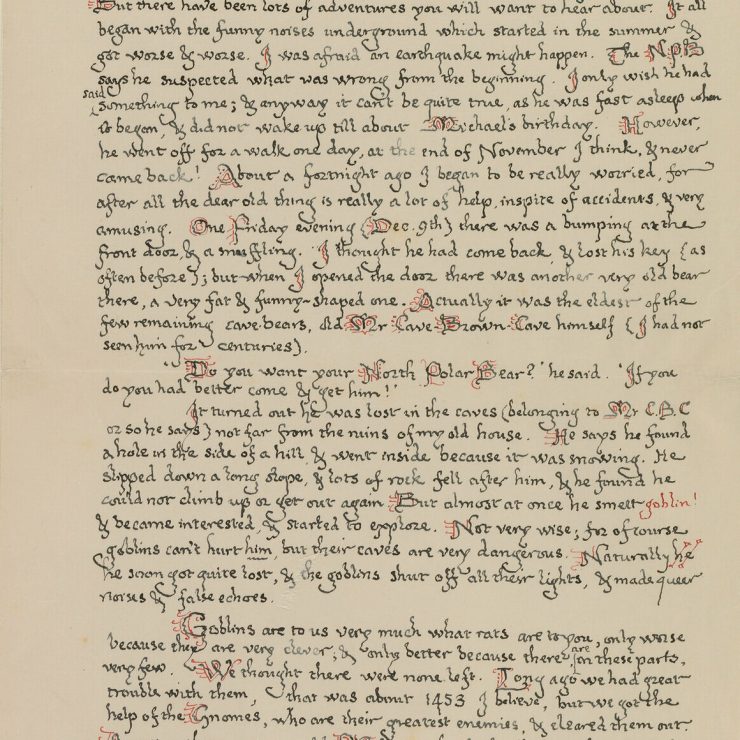 But there have been lots of adventures you will want to hear about. It all
began with the funny noises underground which started in the summer &
got worse & worse. I was afraid an earthquake might happen. The NPB
says he suspected what was wrong from the beginning. I only wish he had
said
something to me; & anyway it can't be quite true, as he was fast asleep when
it began, & did not wake up till about Michael's birthday. However,
he went off for a walk one day, at the end of November I think, & never
came back! About a fortnight ago I began to be really worried, for
after all the dear old thing is really a lot of help, inspite of accidents, & very
amusing. One Friday evening (Dec. 9th) there was a bumping at the
front door, & a snuffling. I thought he had come back, & lost his key (as
often before); but when I opened the door there was another very old bear
there, a very fat & funny-shaped one. Actually it was the eldest of the
few remaining cave-bears, old Mr Cave Brown-Cave himself (I had not
seen him for centuries).
"Do you want your North Polar Bear?" he said. "If you
do you had better come & get him!"
It turned out he was lost in the caves (belonging to Mr C.B.C
or so he says) not far from the ruins of my old house. He says he found
a hole in the side of a hill, & went inside because it was snowing. He
slipped down a long slope, & lots of rock fell after him, & he found he
could not climb up or get out again. But almost at once he smelt goblin!
& became interested, & started to explore. Not very wise; for of course
goblins can't hurt him, but their caves are very dangerous. Naturally he
he soon got quite lost, & the goblins shut off all their lights, & made queer
noises & false echoes.
Goblins are to us very much what rats are to you, only worse
because they are very clever; & only better because there are, in these parts,
very few. We thought there were none left. Long ago we had great
trouble with them, that was about 1453 I believe, but we got the
help of the Gnomes, who are their greatest enemies, & cleared them out.